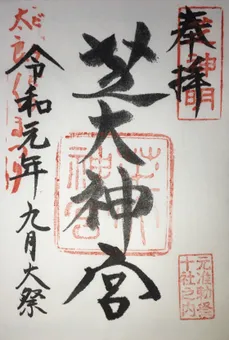 奉拝
芝大神宮
令和元年九月大祭
元准勅祭
十社之内